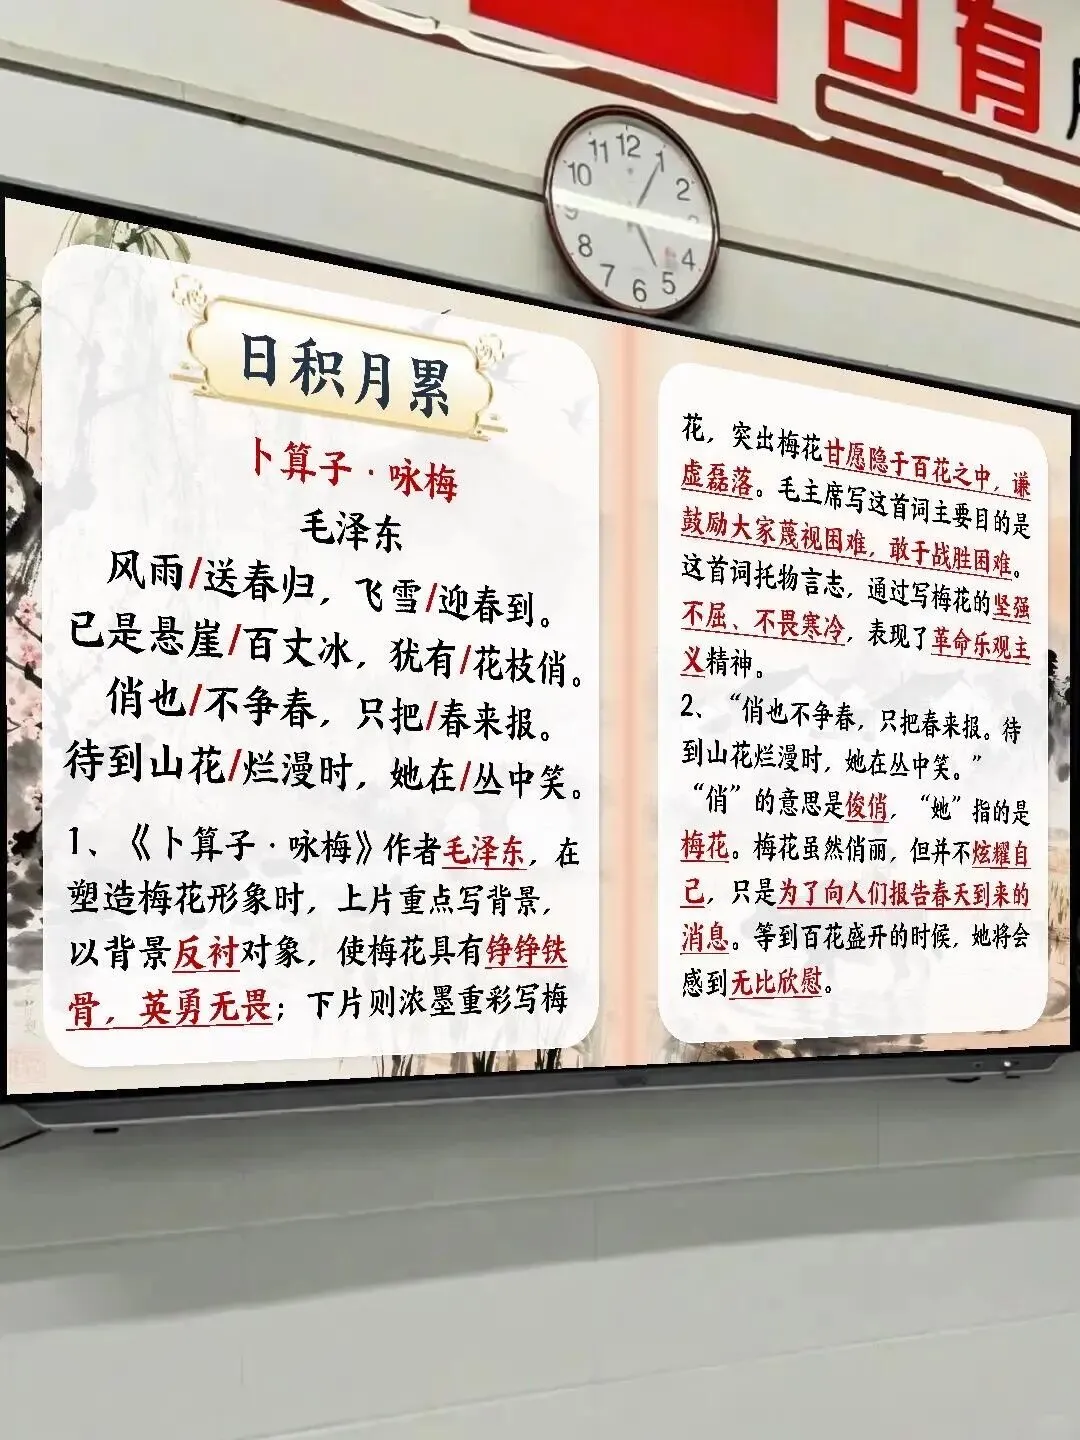 日有
11 12 1
10 2
9 3
8 4
7 6 5
日积月累
卜算子·咏梅
毛泽东
风雨/送春归，飞雪/迎春到。
已是悬崖/百丈冰，犹有/花枝俏。
俏也/不争春，只把/春来报。
待到山花/烂漫时，她在/丛中笑。
1、《卜算子·咏梅》作者毛泽东，在
塑造梅花形象时，上片重点写背景，
以背景反衬对象，使梅花具有铮铮铁
骨，英勇无畏；下片则浓墨重彩写梅
花，突出梅花甘愿隐于百花之中，谦
虚磊落。毛主席写这首词主要目的是
鼓励大家蔑视困难，敢于战胜困难。
这首词托物言志，通过写梅花的坚强
不屈、不畏寒冷，表现了革命乐观主
义精神。
2、“俏也不争春，只把春来报。待
到山花烂漫时，她在丛中笑。”
“俏”的意思是俊俏，“她”指的是
梅花。梅花虽然俏丽，但并不炫耀自
己，只是为了向人们报告春天到来的
消息。等到百花盛开的时候，她将会
感到无比欣慰。